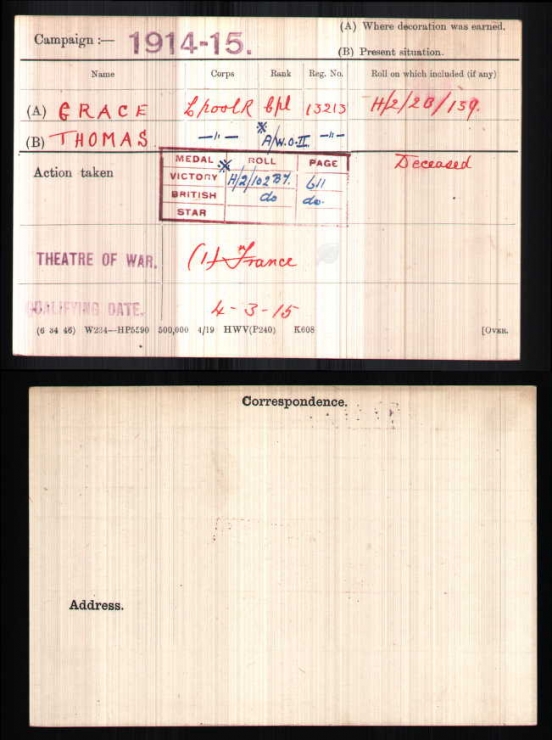 (A) Where decoration was earned.
Campaign :— 1914-15.
(B) Present situation.
Name Corps Rank Reg. No. Roll on which included (if any)
(A) GRACE L'poolR Cpl 13213 H/2/2B/159.
(B) THOMAS —"— * A/W.O.II. —"—
Action taken
Deceased
MEDAL ROLL PAGE
VICTORY * H/2/102B7. 611
BRITISH do do.
STAR
THEATRE OF WAR. (1) France
QUALIFYING DATE. 4-3-15
(6 34 46) W234—HP5590 500,000 4/19 HWV(P240) K608 [OVER.
Correspondence.
Address.